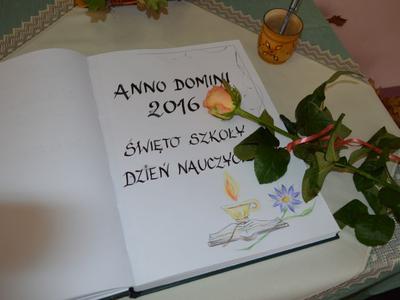 ANNO DOMINI
2016
ŚWIĘTO SZKOŁY
DZIEŃ NAUCZYC